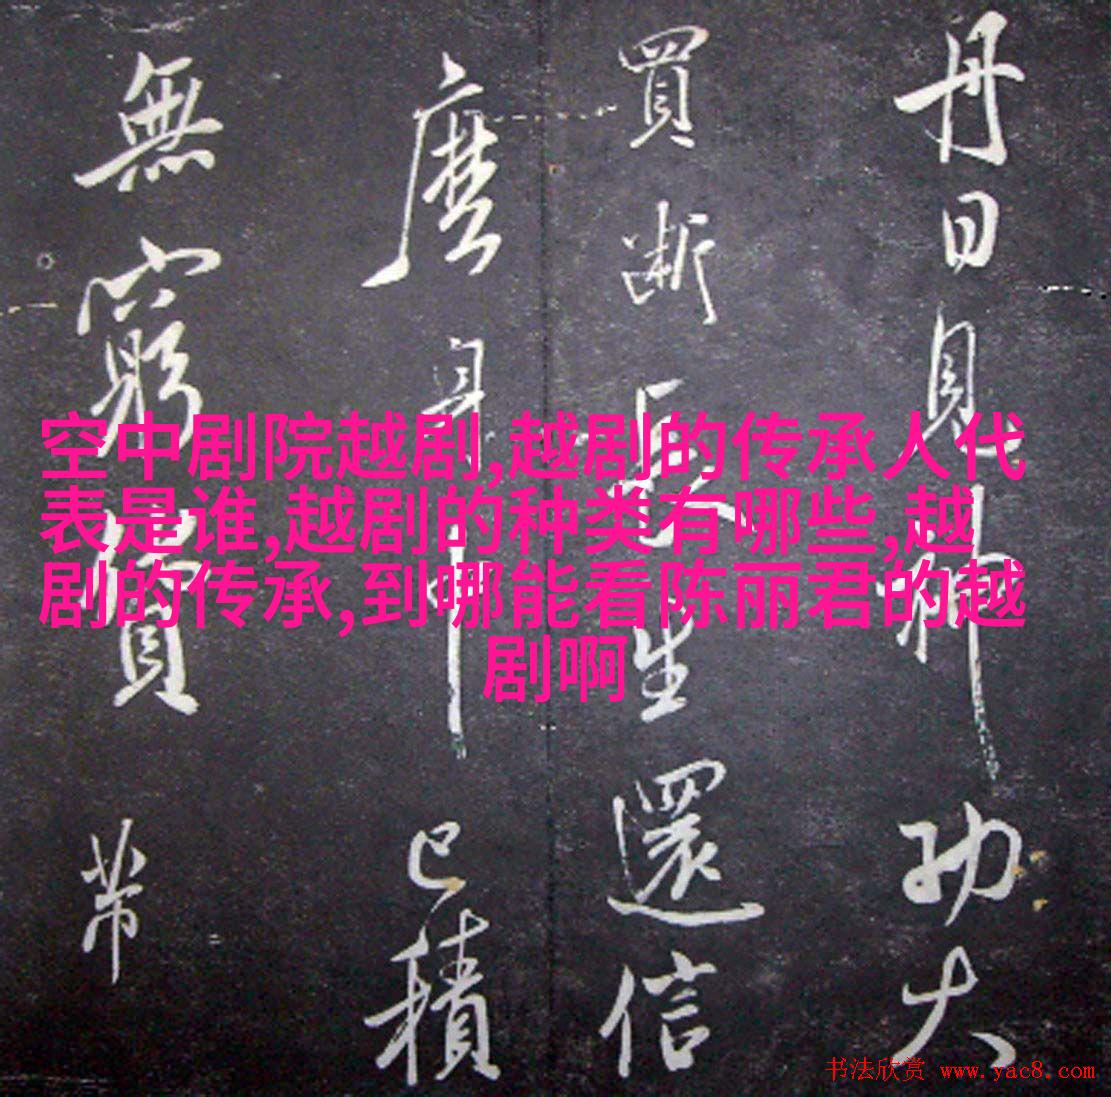 空中剧院越剧,越剧的传承人代
表是谁,越剧的种类有哪些,越
剧的传承,到哪能看陈丽君的越
剧啊
丹日見神功大
買斷長生還信
麼身中已積
無窮帶
书法欣赏 www.yac8.com